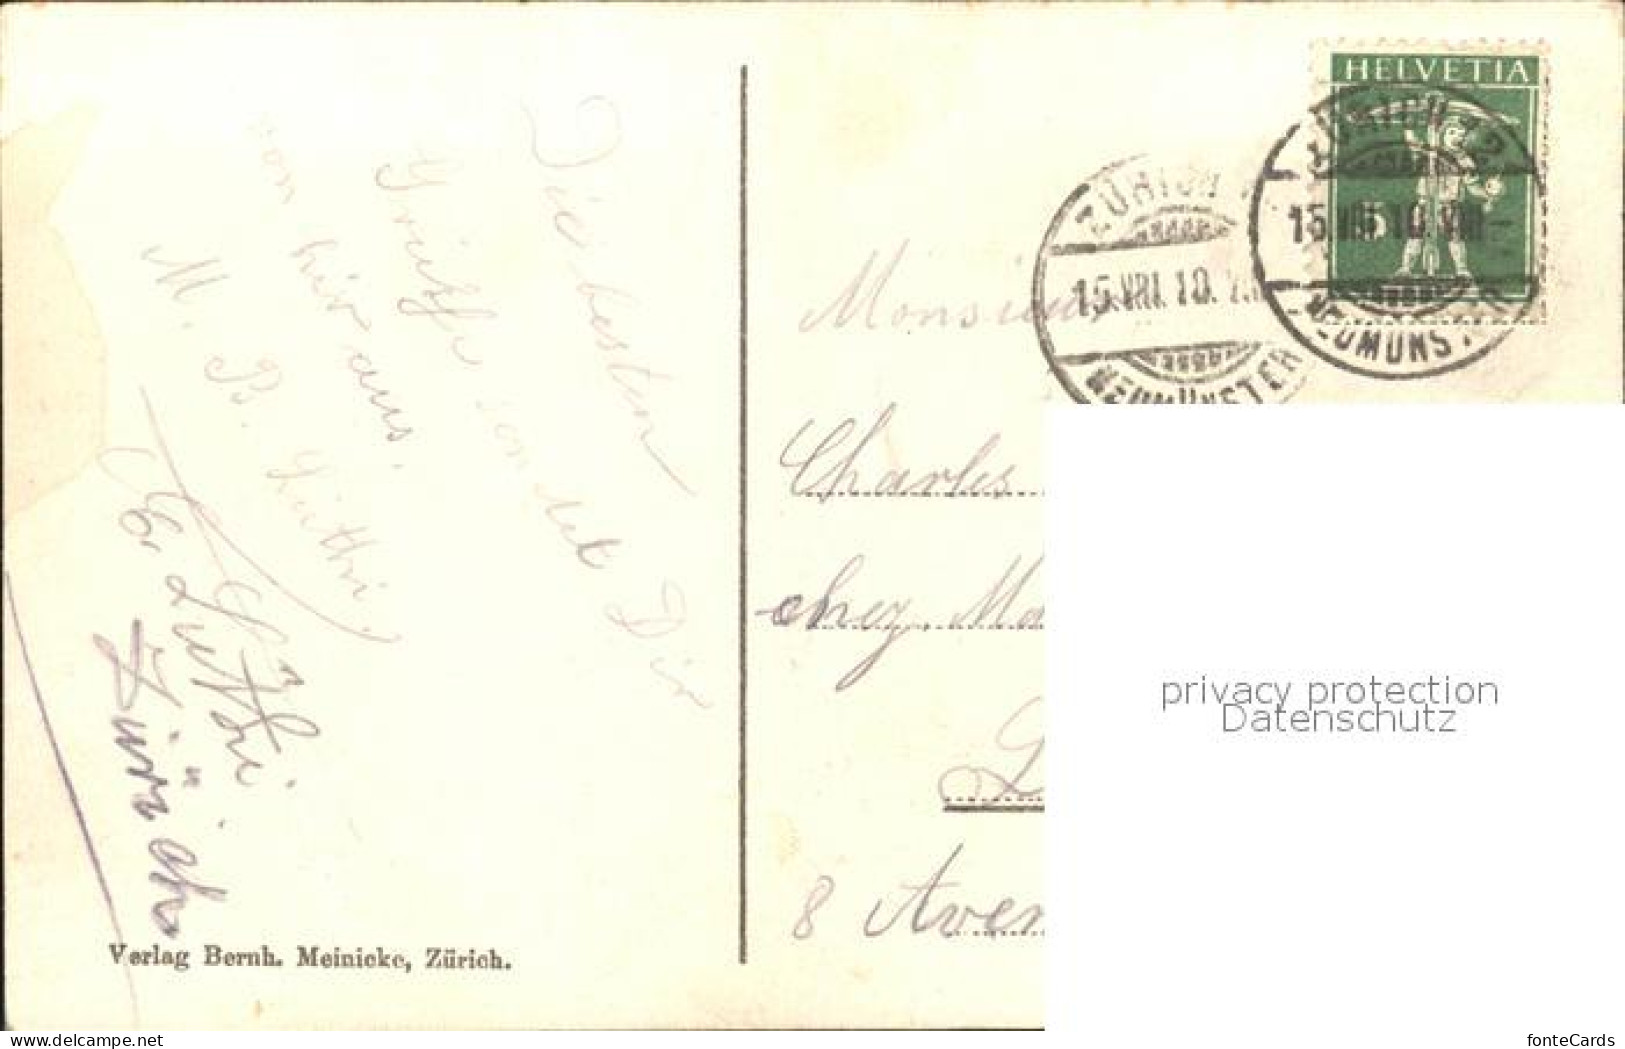 Die besten
Grüsse sendet Dir
von hier aus.
M. B. Lüthi.
E. Lüthi
Zürich
Verlag Bernh. Meinicke, Zürich.
HELVETIA
5
ZÜRICH 12
15.VIII.10.VIII-
NEUMÜNSTER
ZÜRICH
15.VIII.10.
NEUMÜNSTER
Monsieur
Charles
chez Ma
8 Aven
privacy protection
Datenschutz
www.delcampe.net
fonteCards